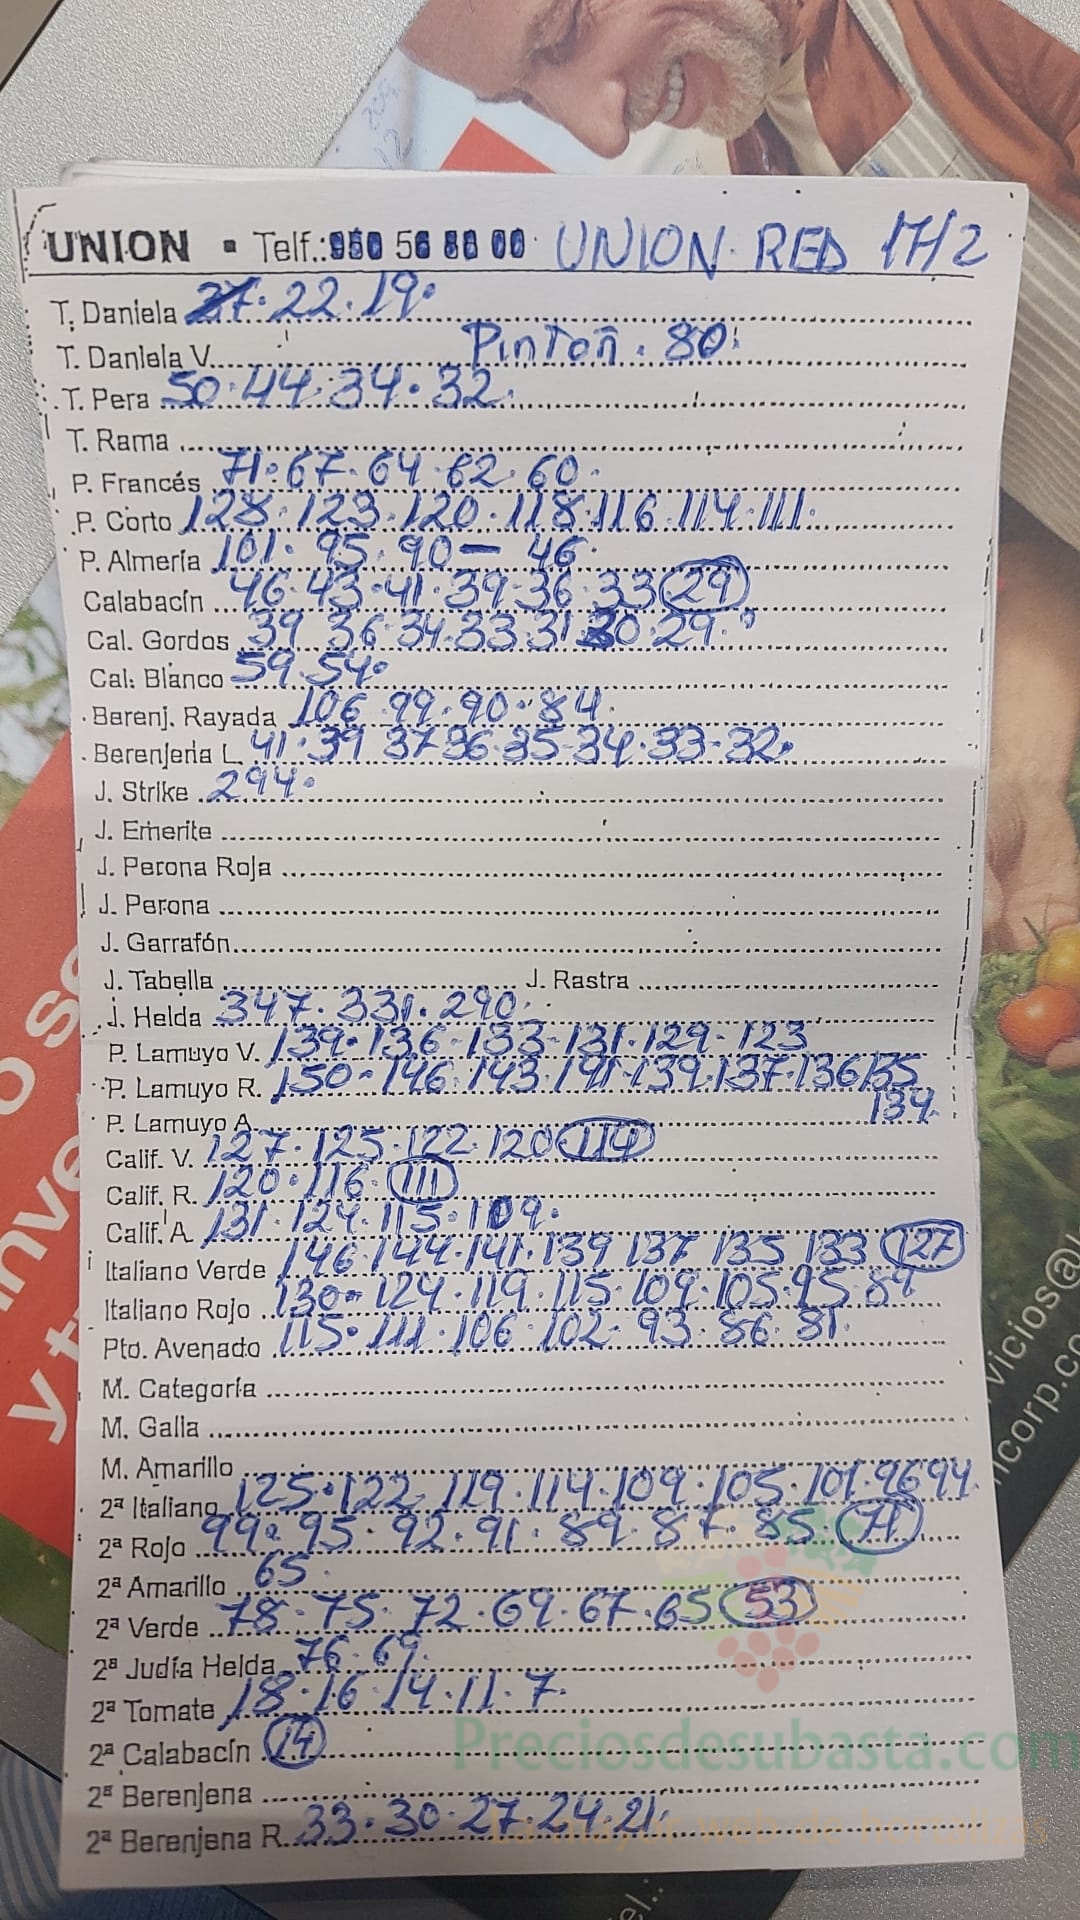 UNION ▪ Telf.: 950 56 88 00 UNION RED 17/2
T. Daniela 27. 22. 19.
T. Daniela V. Pintoñ. 80.
T. Pera 50. 44. 34. 32.
T. Rama
P. Francés 71. 67. 64. 62. 60.
P. Corto 128. 123. 120. 118. 116. 114. 111.
P. Almería 101. 95. 90 — 46.
Calabacín 46. 43. 41. 39. 36. 33 29
Cal. Gordos 39 36. 34. 33. 31 30. 29.
Cal. Blanco 59. 54.
Berenj. Rayada 106 99. 90. 84.
Berenjena L. 41. 39 37 36. 35. 34. 33. 32.
J. Strike 294.
J. Emerite
J. Perona Roja
J. Perona
J. Garrafón
J. Tabella J. Rastra
J. Helda 347. 331. 290.
P. Lamuyo V. 139. 136. 133. 131. 129. 123
P. Lamuyo R. 150. 146. 143. 141. 139. 137. 136 135
P. Lamuyo A. 134.
Calif. V. 127. 125. 122. 120 114
Calif. R. 120. 116. 111
Calif. A. 131. 124. 115. 109.
Italiano Verde 146. 144. 141. 139 137 135 133 127
Italiano Rojo 130. 124. 119. 115. 109. 105. 95. 89
Pto. Avenado 115. 111. 106. 102. 93. 86. 81.
M. Categoría
M. Galla
M. Amarillo
2ª Italiano 125. 122. 119. 114. 109. 105. 101. 96 94.
2ª Rojo 99. 95. 92. 91. 89. 87. 85. 71
2ª Amarillo 65.
2ª Verde 78. 75. 72. 69. 67. 65 53
2ª Judía Helda 76. 69.
2ª Tomate 18. 16. 14. 11. 7.
2ª Calabacín 14
2ª Berenjena
2ª Berenjena R. 33. 30. 27. 24. 21.
Preciosdesubasta.com
La mayor web de hortalizas